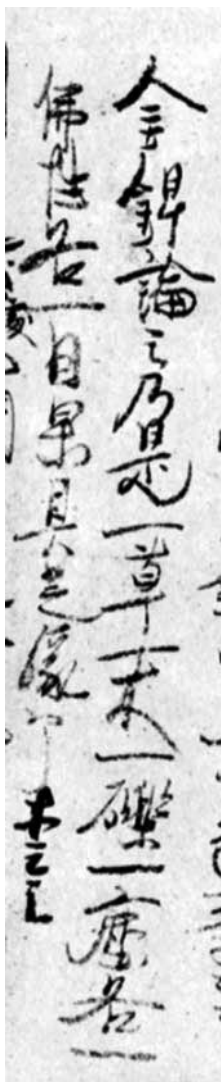 金錍論云乃是一草一木一礫一塵各一
佛性各一因果具足縁了等云云